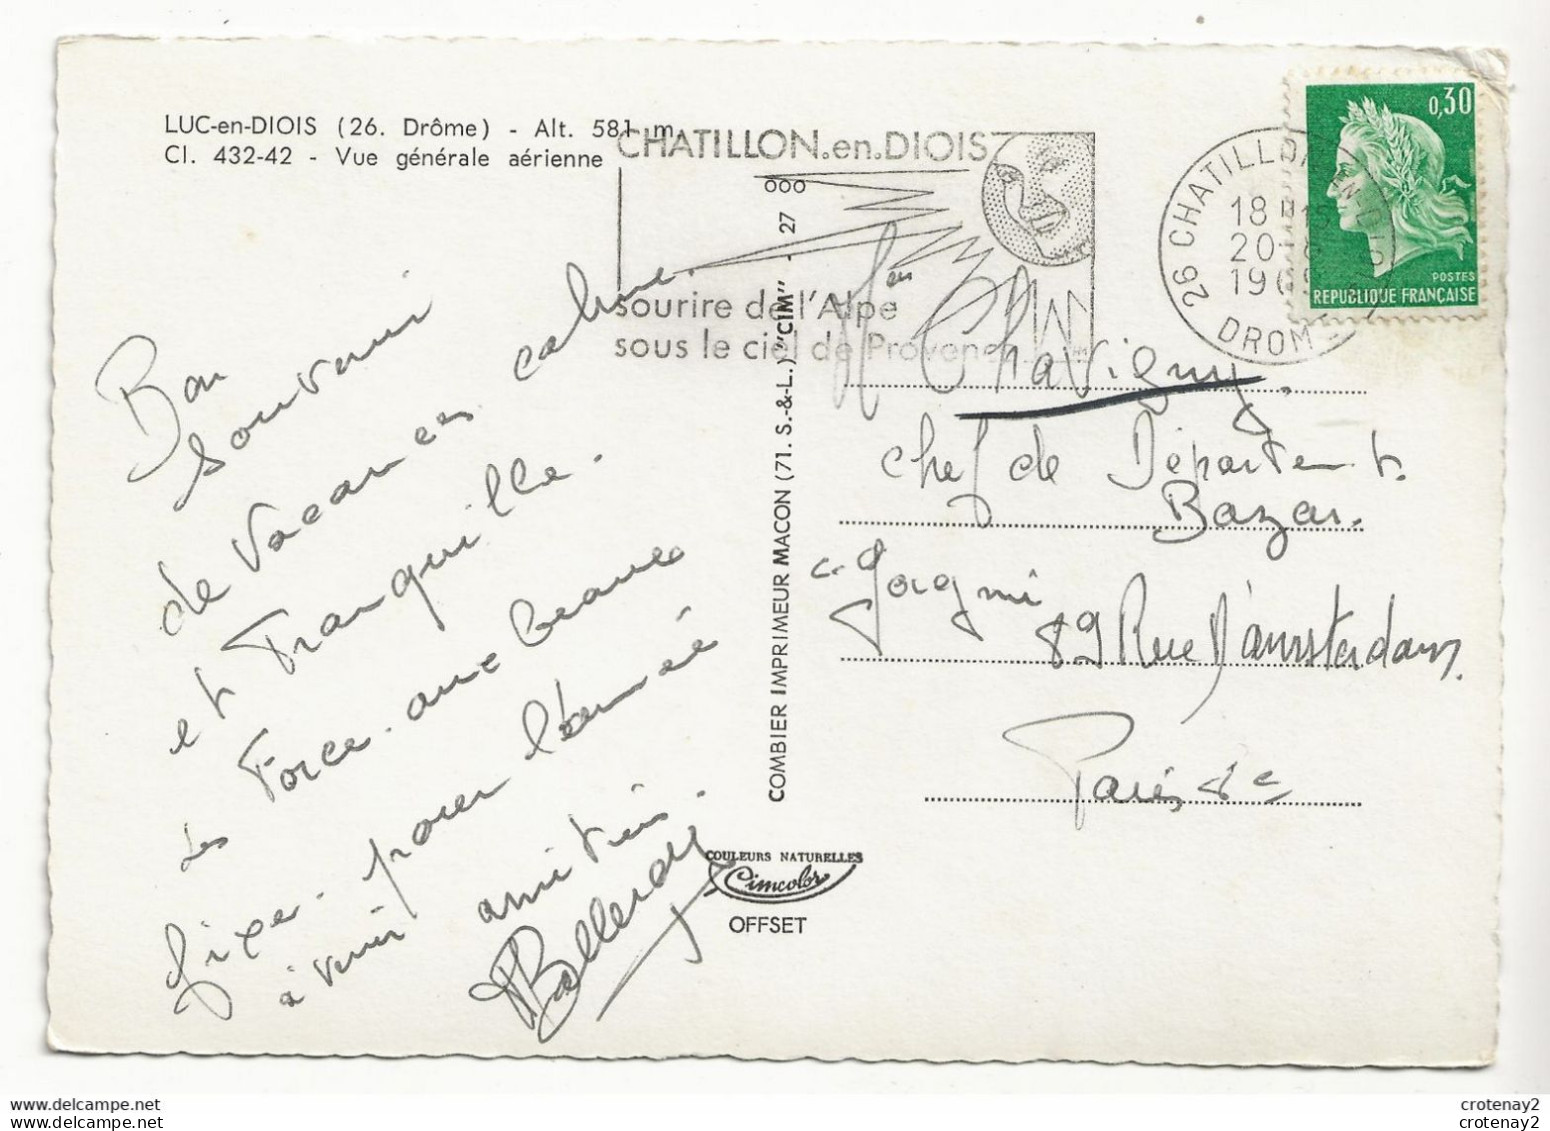 LUC-en-DIOIS (26. Drôme) - Alt. 581 m.
Cl. 432-42 - Vue générale aérienne
CHATILLON.en.DIOIS
sourire de l'Alpe
sous le ciel de Provence
26 CHATILLON EN DIOIS
18 H
20
1969
DROME
0,30
POSTES
REPUBLIQUE FRANÇAISE
Bon
souvenir
de vacances calme.
et Tranquille.
Force. aux beaux
fixe. pour l'année
à venir amitiés.
COMBIER IMPRIMEUR MACON (71. S.-&-L.) "CIM" - 27 000
COULEURS NATURELLES
Cimcolor
OFFSET
Chavigny.
chef de Département
Bazar.
89 Rue d'amsterdam.
Paris 8e
delcampe.net
crotenay2
delcampe.net
crotenay2